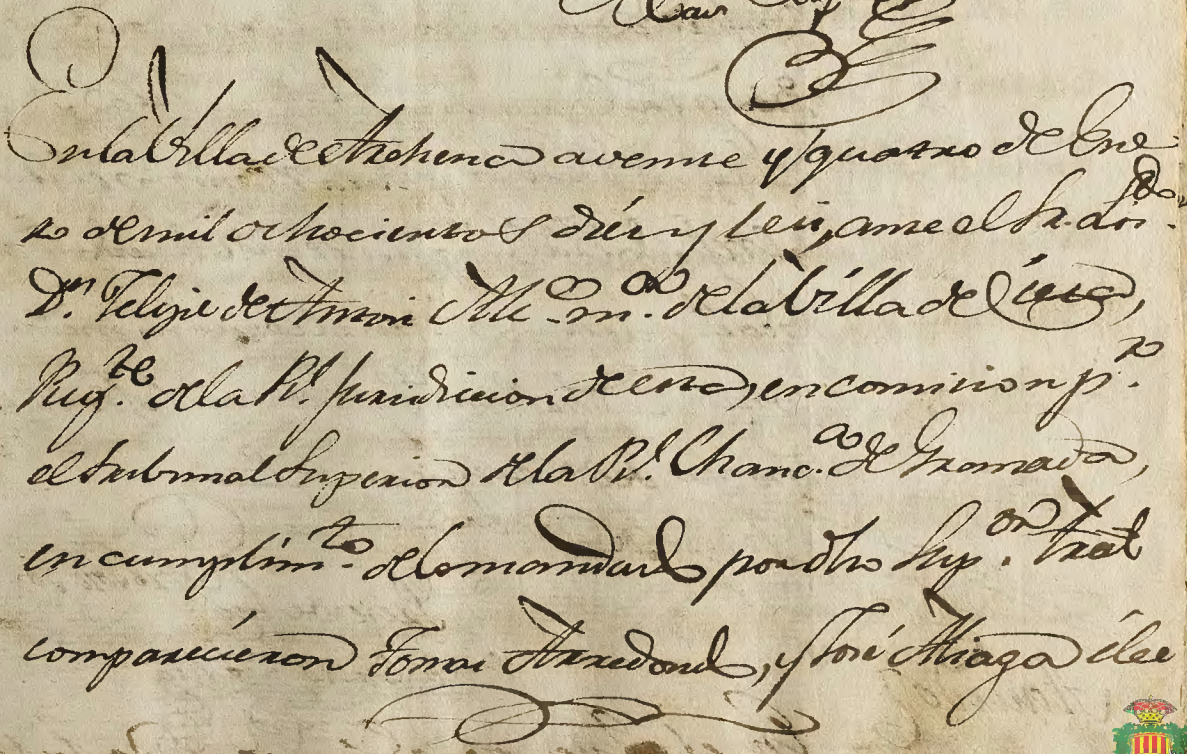 En la Villa de Archena a veinte y quatro de Ene
ro de mil ochocientos diez y seis, ante el Sr. Lii.do
D.n Felipe de Amori Alc.e m.or de la Villa de Cieza,
Reg.te de la R.l Juridicion de esta, en comision p.r
el tribunal Superior de la R.l Chanc.a de Granada,
en cumplim.to de lo mandado por dho Sup.or tral
comparecieron Tomas Arredondo, y José Aliaga